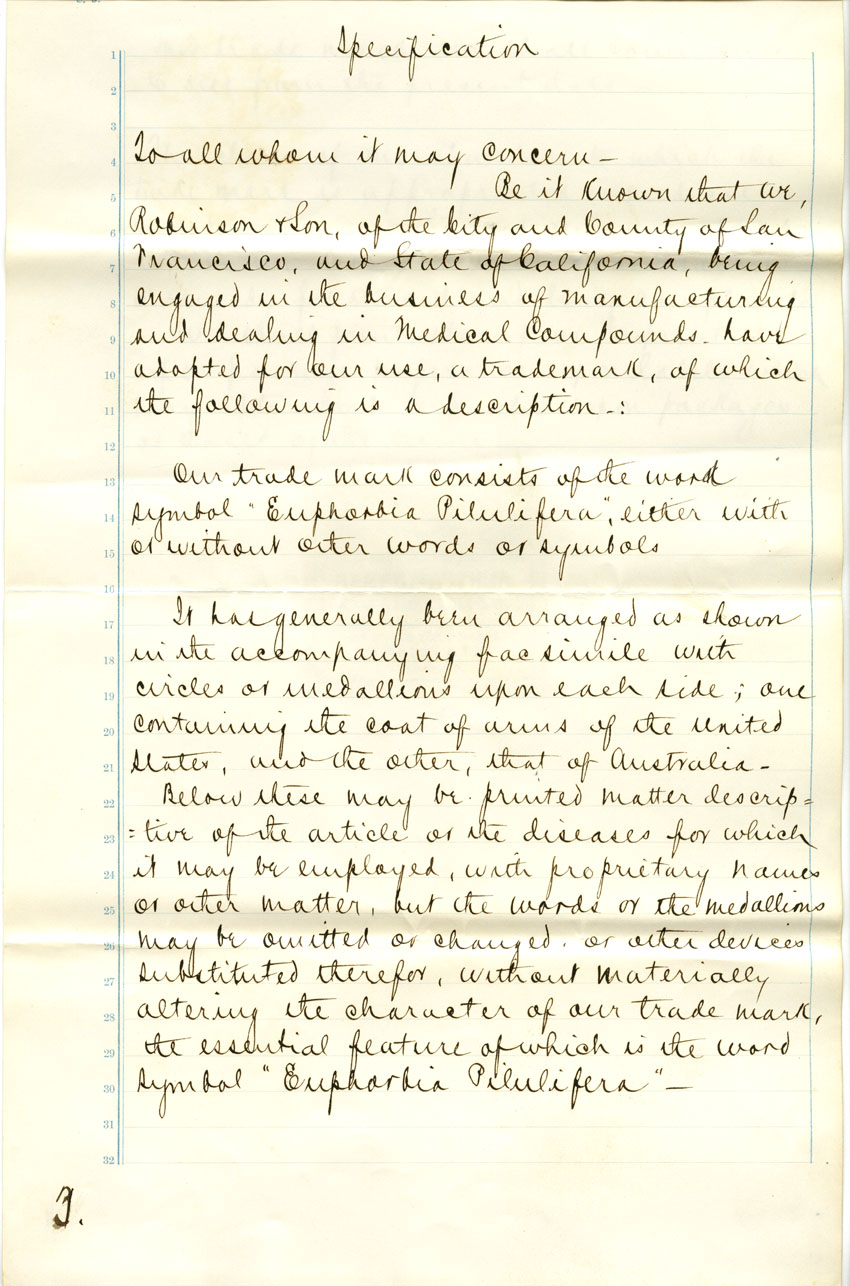 Specification
1
2
3
4 To all whom it may concern –
5 Be it Known that we,
6 Robinson & Son, of the City and County of San
7 Francisco, and State of California, being
8 engaged in the business of manufacturing
9 and dealing in Medical Compounds. have
10 adopted for our use, a trademark, of which
11 the following is a description -:
12
13 Our trade mark consists of the word
14 symbol "Euphorbia Pilulifera", either with
15 or without other words or symbols
16
17 It has generally been arranged as shown
18 in the accompanying fac simile with
19 circles or medallions upon each side; one
20 containing the coat of arms of the United
21 States, and the other, that of Australia –
22 Below these may be printed matter descrip=
23 =tive of the article or the diseases for which
24 it may be employed, with proprietary names
25 or other matter, but the words or the medallions
26 may be omitted or changed. or other devices
27 substituted therefor, without materially
28 altering the character of our trade mark,
29 the essential feature of which is the word
30 symbol "Euphorbia Pilulifera" –
31
32
3.